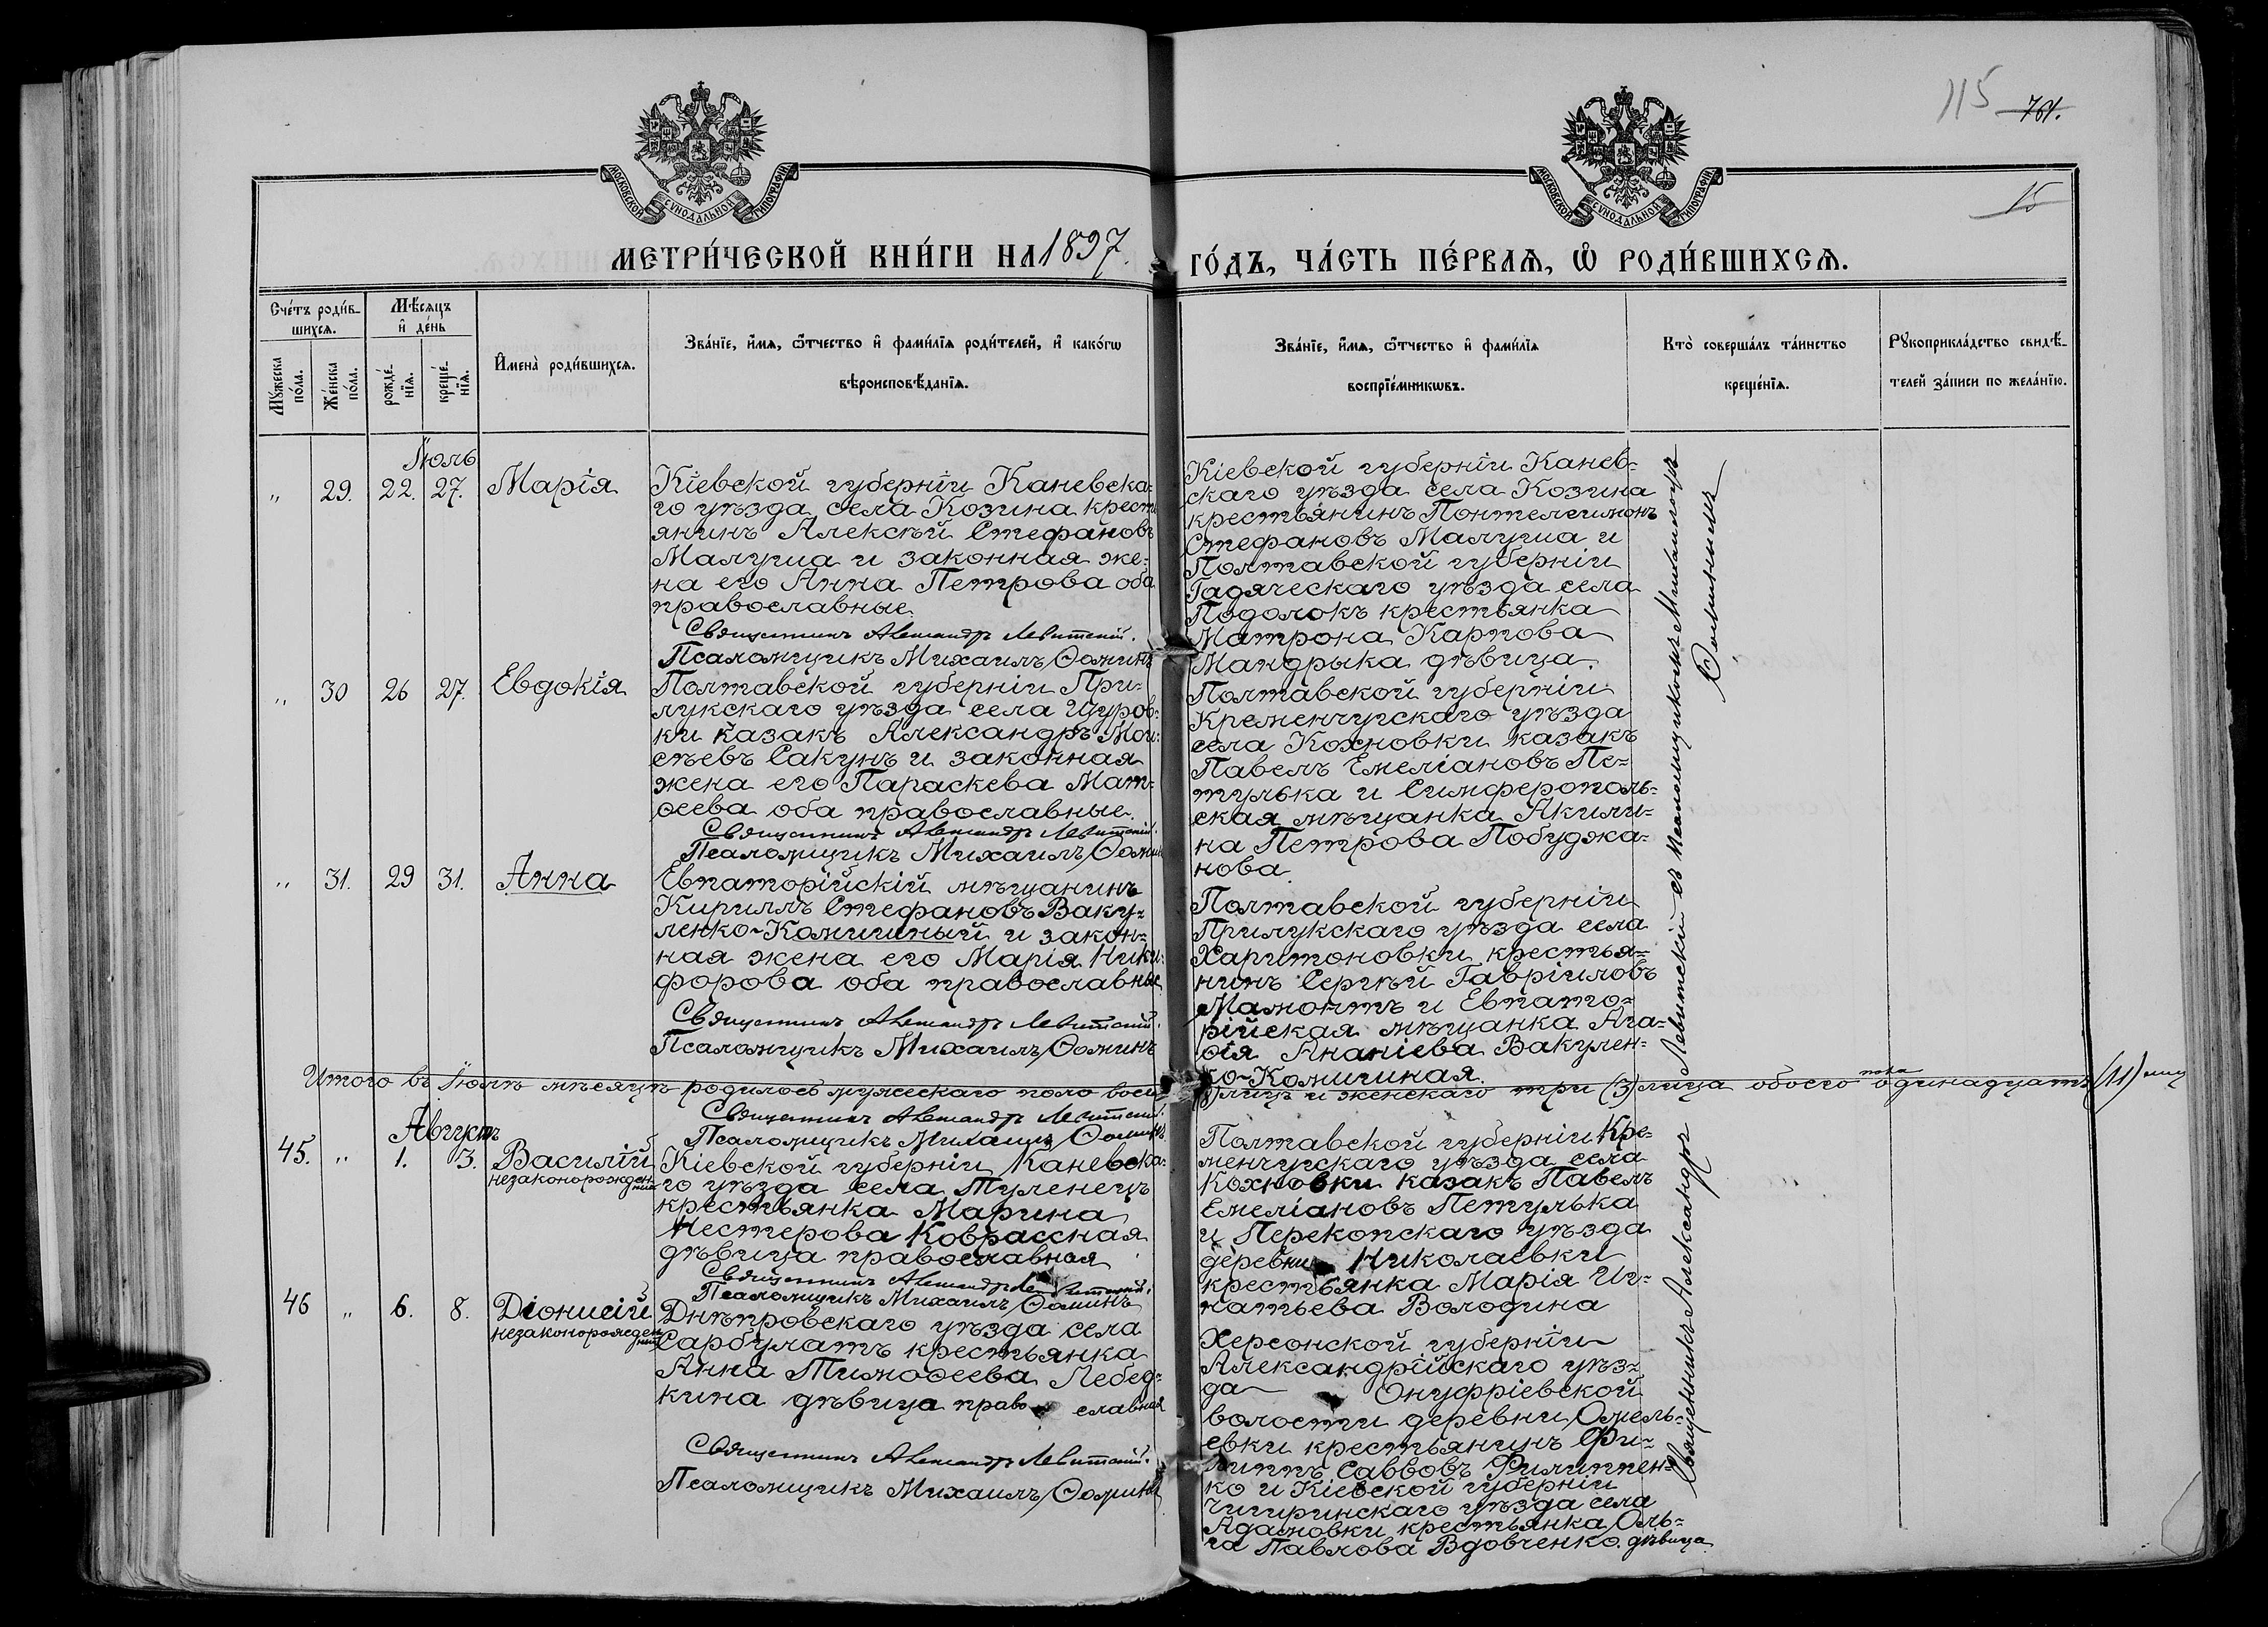 115 761.
15
МОСКОВСКОЙ СѴНОДАЛЬНОЙ ТИПОГРАФІИ
МОСКОВСКОЙ СѴНОДАЛЬНОЙ ТИПОГРАФІИ
МЕТРИ́ЧЕСКОЙ КНИ́ГИ НА 1897.
ГО́ДЪ, ЧА́СТЬ ПЕ́РВАѦ, Ѡ҆ РОДИ́ВШИХСѦ.
Сче́тъ роди́в-
шихсѧ.
Мꙋ́жеска по́ла.
Же́нска по́ла.
Мѣ́сѧцъ
и҆ де́нь
рожде́-
нїѧ.
креще́-
нїѧ.
И҆мена̀ роди́вшихсѧ.
Зва́нїе, и҆́мѧ, ѻ҆́тчество и҆ фами́лїѧ роди́телей, и҆ како́гѡ
вѣроисповѣ́данїѧ.
Зва́нїе, и҆́мѧ, ѻ҆́тчество и҆ фами́лїѧ
воспрїе́мникѡвъ.
Кто̀ соверша́лъ та́инство
креще́нїѧ.
Рꙋкоприкла́дство свидѣ́-
телей за́писи по жела́нїю.
Іюль
„ 29. 22. 27. Марія
Кіевской губерніи Каневска-
го уѣзда села Козина кресть
янинъ Алексѣй Стефановъ
Малуша и законная же-
на его Анна Петрова оба
православные
Священникъ Александръ Левитскій.
Псаломщикъ Михаилъ Ѳоминъ
Кіевской губерніи Канев-
скаго уѣзда села Козина
крестьянинъ Понтелеимонъ
Стефановъ Малуша и
Полтавской губерніи
Гадяческаго уѣзда села
Подолокъ крестьянка
Матрона Карпова
Мандрыка дѣвица.
„ 30 26 27. Евдокія
Полтавской губерніи При-
лукскаго уѣзда села Щуров-
ки казакъ Александръ Мои-
сѣевъ Сакунъ и законная
жена его Параскева Мат-
ѳеева оба православные.
Священникъ Александръ Левитскій.
Псаломщикъ Михаилъ Ѳомин
Полтавской губерніи
Кременчугскаго уѣзда
села Кохновки казакъ
Павелъ Емеліановъ Пе-
тулька и Симферополь-
ская мѣщанка Акили-
на Петрова Побуджа-
нова.
„ 31. 29 31. Анна
Евпаторійскій мѣщанинъ
Кириллъ Стефановъ Ваку-
ленко-Комишный и закон-
ная жена его Марія Ники-
форова оба православные
Священникъ Александръ Левитскій.
Псаломщикъ Михаилъ Ѳоминъ
Полтавской губерніи
Прилукскаго уѣзда села
Харитоновки крестья-
нинъ Сергѣй Гавріиловъ
Мамонтъ и Евпато-
рійская мѣщанка Ага-
ѳія Ананіева Вакулен-
ко-Комишная.
Итого въ Іюлѣ мѣсяцѣ родилось мужескаго пола восемь (8) лицъ и женскаго три (3) лица обоего пола одинадцать (11) лиц
Священникъ Александръ Левитскій.
Псаломщикъ Михаилъ Ѳоминъ.
Августъ
45. „ 1. 3. Василій
незаконорожден-
ный
Кіевской губерніи Каневска-
го уѣзда села Туленецъ
крестьянка Марина
Нестерова Коврассная
дѣвица православная
Священникъ Александръ Левитскій.
Псаломщикъ Михаилъ Ѳоминъ
Полтавской губерніи Кре-
менчугскаго уѣзда села
Кохновки казакъ Павелъ
Емеліановъ Петулька
и Перекопскаго уѣзда
деревни Николаевки
крестьянка Марія Иг-
натьева Володина
46 „ 6. 8. Діонисій
незаконорожден
ный
Днѣпровскаго уѣзда села
Сарбулатъ крестьянка
Анна Тимоѳеева Лебед-
кина дѣвица право славная
Священникъ Александръ Левитскій.
Псаломщикъ Михаилъ Ѳоминъ
Херсонской губерніи
Александрійскаго уѣз-
да Онуфріевской
волости деревни Омель-
евки крестьянинъ Фи-
липпъ Саввовъ Филиппен-
ко и Кіевской губерніи
Чигиринскаго уѣзда села
Адамовки крестьянка Оль-
га Павлова Вдовченко. дѣвица
Священникъ Александръ Левитскій съ Псаломщикомъ Михаиломъ
Ѳоминымъ